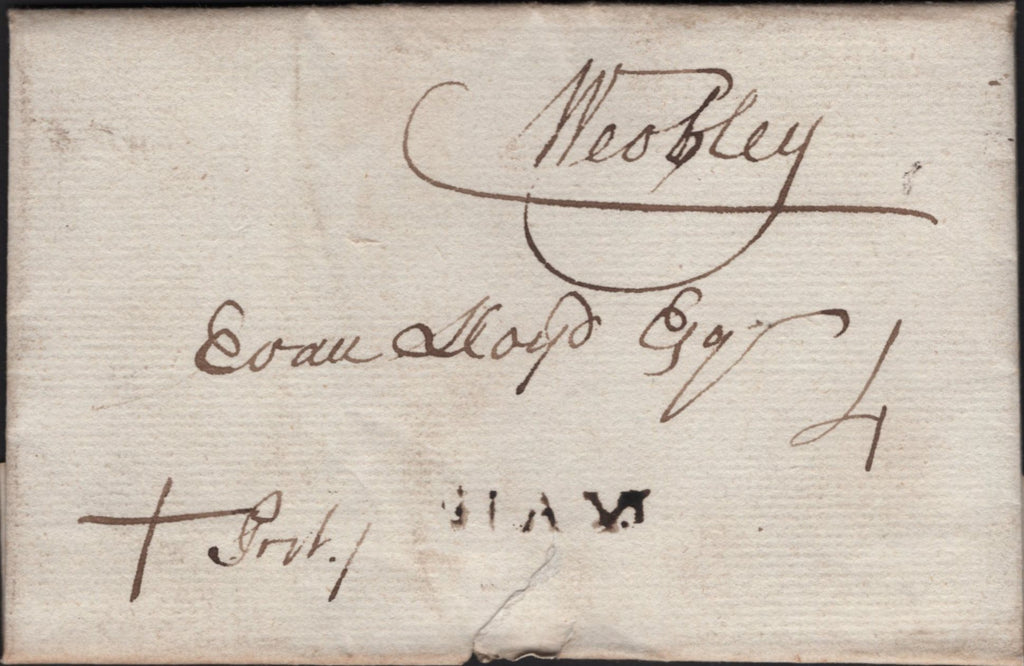 Weobley
Evan Lloyd Esqr
4
+ Post /